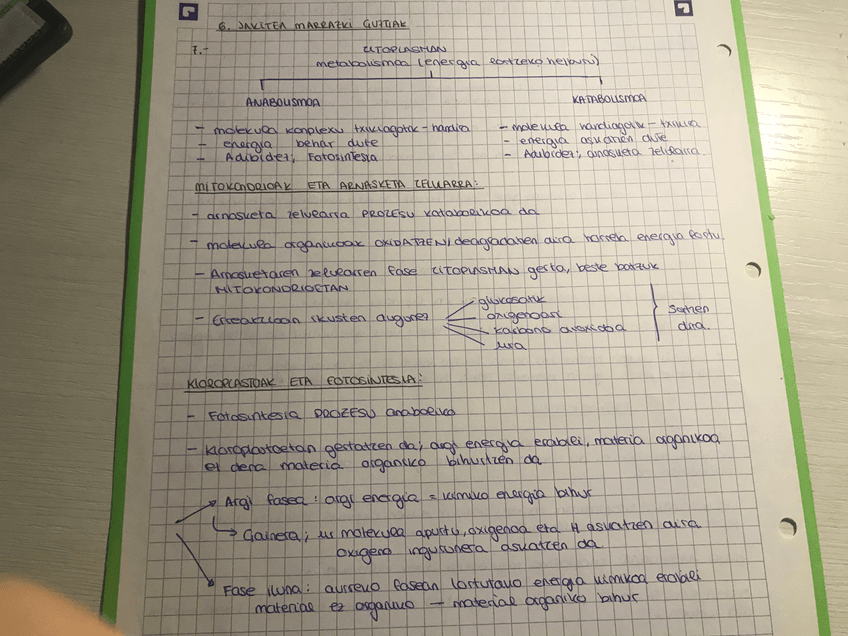 6. JAKITEA MARRAZKI GUZTIAK
7.-
ZITOPLASMAN
metabolismoa (energia lortzeko helburu)
ANABOLISMOA
KATABOLISMOA
- molekula konplexu txikiagotik - handia
- energia behar dute
- Adibidez; Fotosintesia
- molekula handiagotik - txikira
- energia askatzen dute
- Adibidez; arnasketa zelularra.
MITOKONDRIOAK ETA ARNASKETA ZELULARRA:
- arnasketa zelularra PROZESU katabolikoa da
- molekula organikoak OXIDATZEN/degradatzen dira horrela energia lortu.
- Arnasketaren zelularren fase ZITOPLASMAN gerta, beste batzuk
MITOKONDRIOETAN
- Erreakzioan ikusten dugunez
glukosatik
oxigenoari
karbono dioxidoa
ura
Sortzen
dira.
KLOROPLASTOAK ETA FOTOSINTESIA:
- Fotosintesia PROZESU anaboliko
- kloroplastoetan gertatzen da; argi energia erabili, materia organikoa
ez dena materia organiko bihurtzen da
Argi fasea: argi energia = kimiko energia bihur
Gainera; ur molekula apurtu, oxigenoa eta H askatzen dira
oxigeno ingurunera askatzen da
Fase iluna: aurreko fasean lortutako energia kimikoa erabili
material ez organiko — material organiko bihur